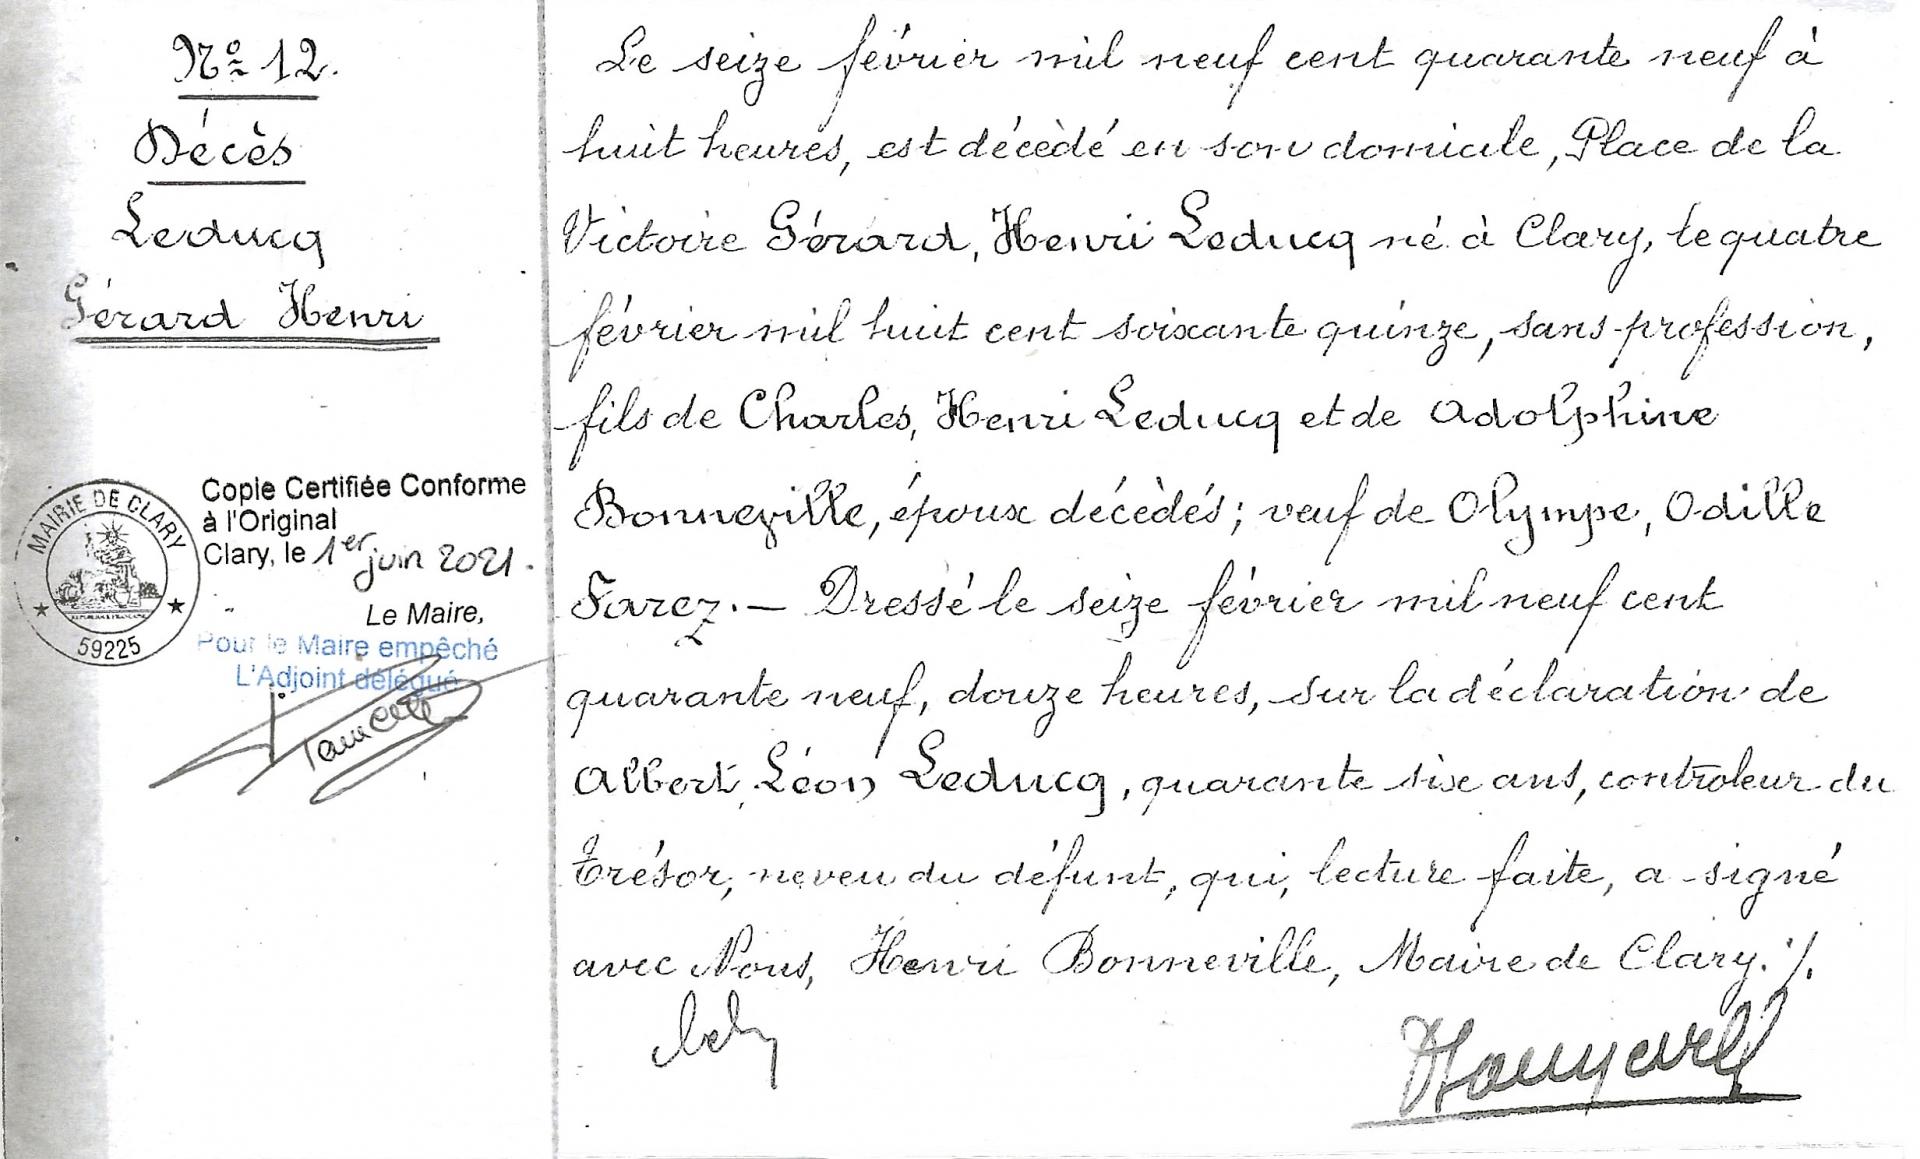 Nº 12.
Décès
Leducq
Gérard Henri
MAIRIE DE CLARY
59225
Copie Certifiée Conforme
à l'Original
Clary, le 1er juin 2021.
Le Maire,
Pour le Maire empêché
L'Adjoint délégué
Le seize février mil neuf cent quarante neuf à
huit heures, est décèdé en son domicile, Place de la
Victoire Gérard, Henri Leducq né à Clary, le quatre
février mil huit cent soixante quinze, sans profession,
fils de Charles, Henri Leducq et de Adolphine
Bonneville, époux décèdés; veuf de Olympe, Odille
Farez. — Dressé le seize février mil neuf cent
quarante neuf, douze heures, sur la déclaration de
Albert, Léon Leducq, quarante six ans, contrôleur du
Trésor, neveu du défunt, qui, lecture faite, a signé
avec Nous, Henri Bonneville, Maire de Clary ./.